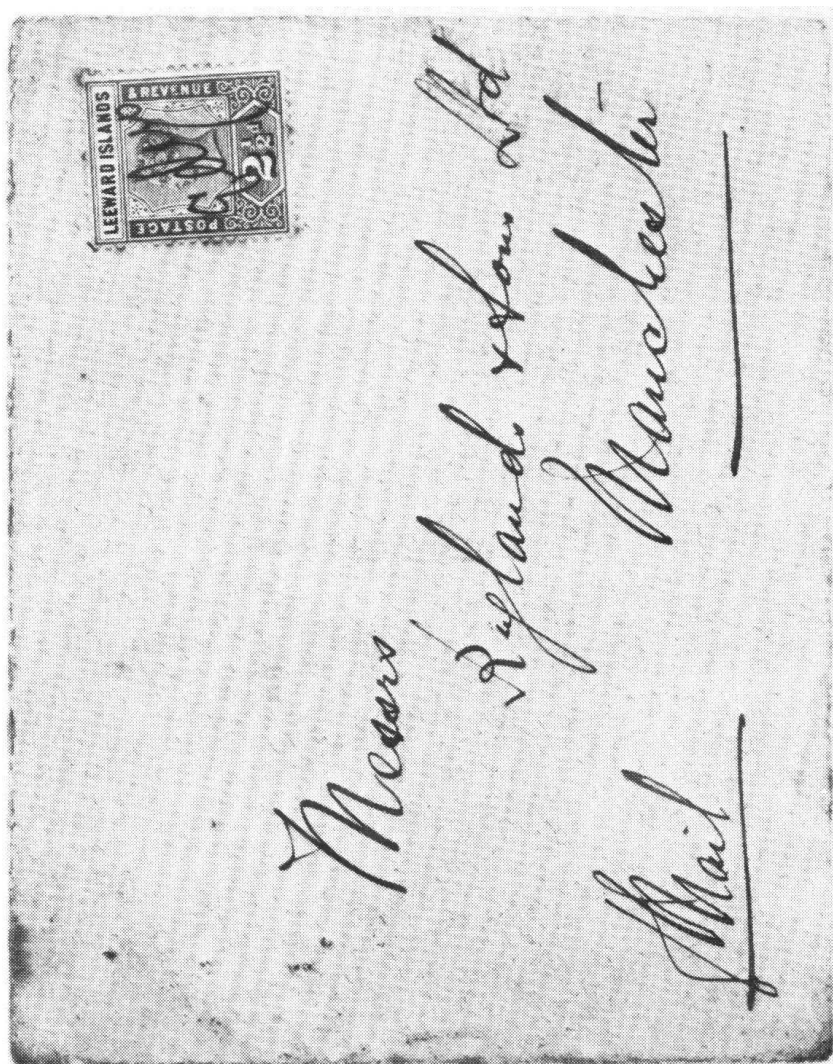 LEEWARD ISLANDS
POSTAGE & REVENUE
2½d
Messrs
Rylands & Sons Ltd
Manchester
p Mail